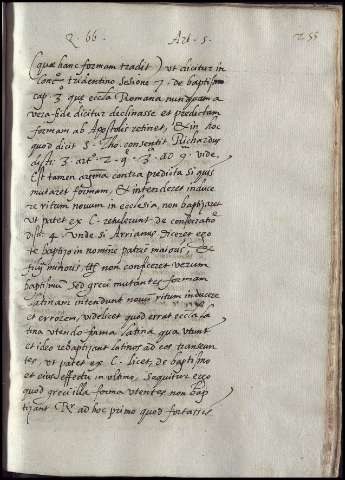 Q. 66. Art. 5. 255
(quæ hanc formam tradet) ut dicitur in
conc.º tridentino sesione 7. de baptismo
cap. 3º que eccla Romana nunquam a
vera fide dicitur declinasse et predictam
formam ab Apostolis retinet, & in hoc
quod dicit S. Tho. consentit Richardus
disti. 3. artº. 2. q. 3. ad 9. vide.
Est tamen argum. contra predicta si quis
mutaret formam, & intenderet induce
re ritum novum in ecclesia non baptizaret
ut patet ex C. retulerunt. de consecratio.
dist. 4. unde si Arrianus diceret ego
te baptizo in nomine patris maioris, &
filij minoris, non conficeret verum
baptismũ sed greci mutantes formam
latinam intendunt novũ ritum inducere
et errorem, videlicet quod errat eccla la
tina utendo forma latina qua utunt
et ideo rebaptizant latinos ad eos transeun
tes, ut patet ex C. licet, de baptismo
et eius effectu in ultimo, sequitur ergo
quod greci illa forma utentes non bap
tizant. Rs. ad hoc primo quod fortassis